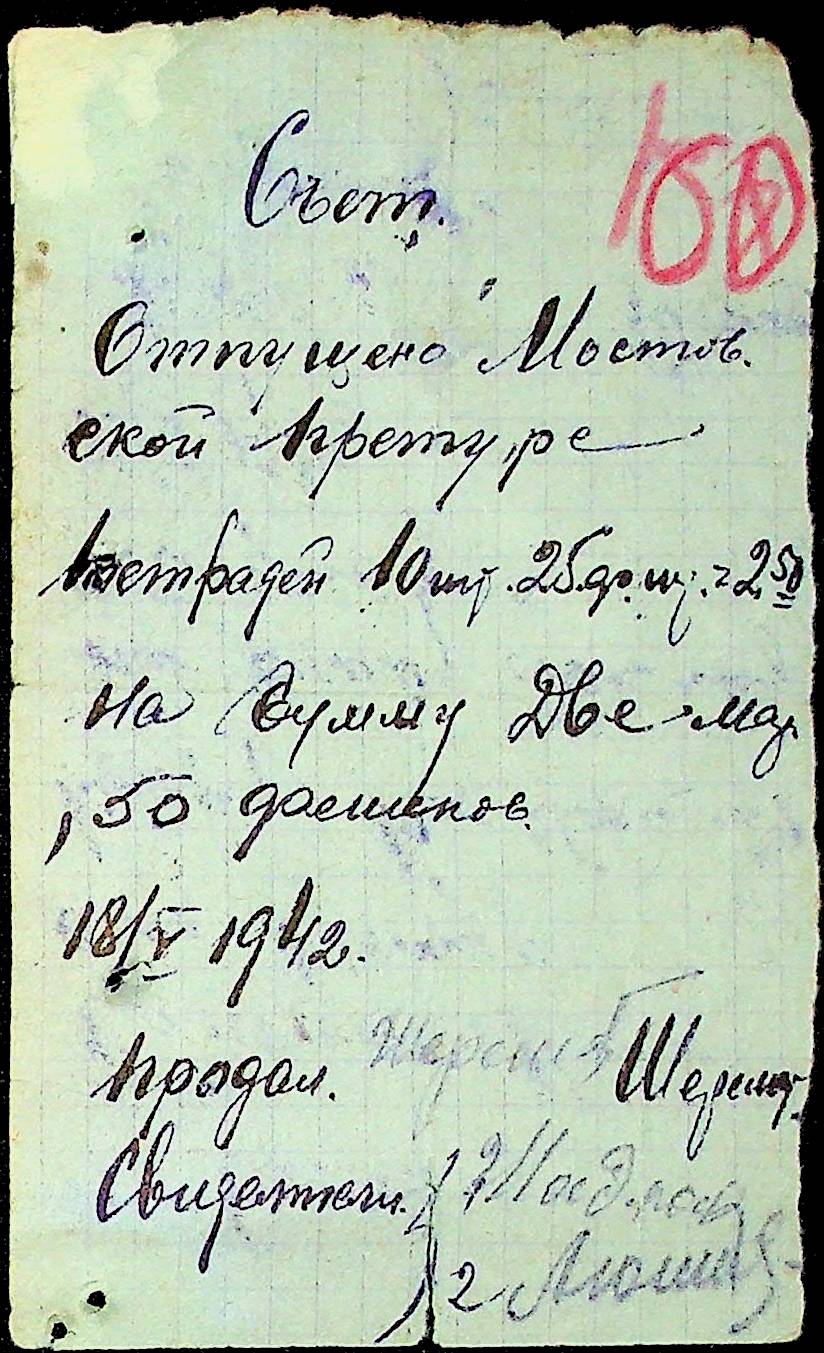 Счет.
150
Отпущено Мостов.
ской претуре
тетрадей 10 шт. 25 пф. шт. = 2 50
на сумму Две мар
, 50 фенигов.
18/V 1942.
продал. Шеремт.
Свидетели.
1
2